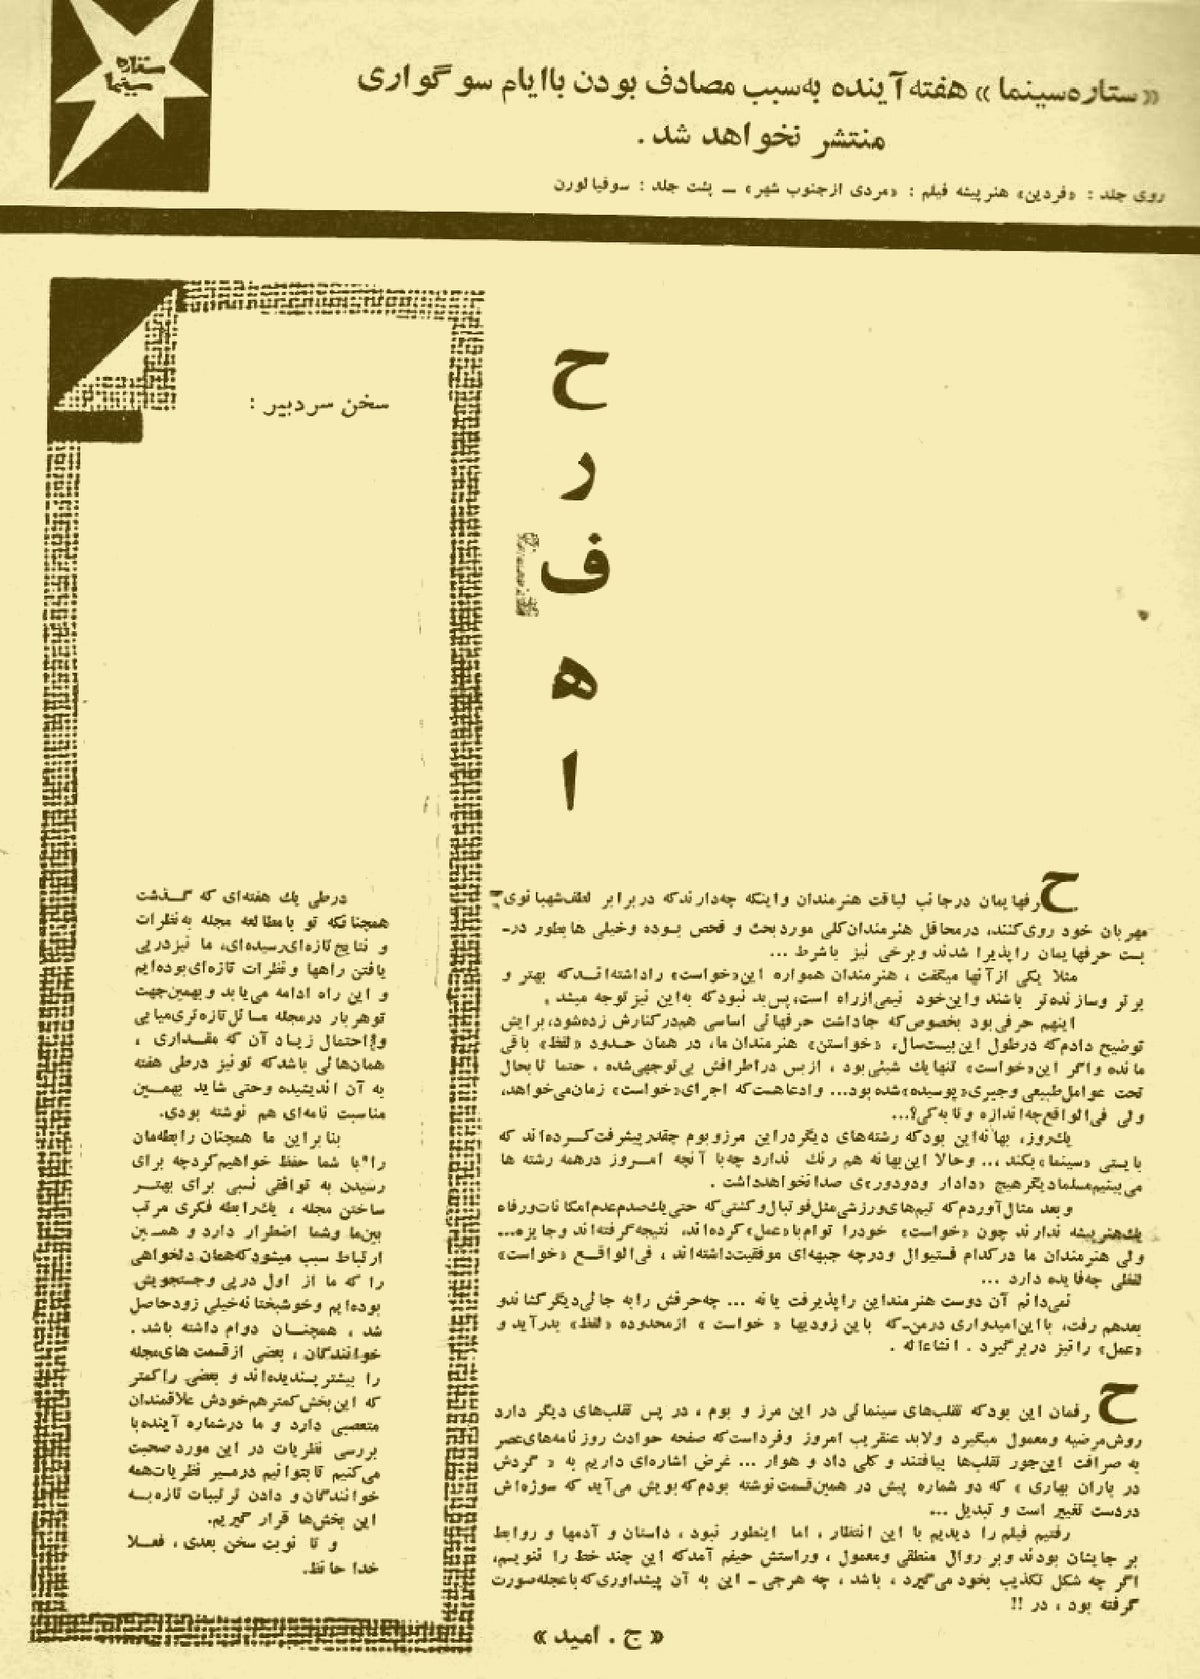 ستاره
سینما
«ستاره‌سینما» هفته آینده به‌سبب مصادف بودن باایام سوگواری
منتشر نخواهد شد.
روی جلد : «فردین» هنرپیشه فیلم : «مردی ازجنوب شهر» ــ پشت جلد : سوفیا لورن
ح
ر
ف
ه
ا
حرفهایمان درجانب لیاقت هنرمندان واینکه چه‌دارندکه دربرابر لطف‌شهبانوی
مهربان خود روی‌کنند، درمحافل هنرمندان‌کلی موردبحث و فحص بوده وخیلی هابطور در-
بست حرفهایمان راپذیرا شدند وبرخی نیز باشرط ...
مثلا یکی ازآنها میگفت ، هنرمندان همواره این«خواست» راداشته‌اندکه بهتر و
برتر وسازنده‌تر باشند واین‌خود نیمی‌ازراه است، پس‌بد نبودکه به‌این نیزتوجه میشد .
اینهم حرفی‌بود بخصوص‌که جاداشت حرفهائی اساسی هم‌درکنارش زده‌شود، برایش
توضیح دادم‌که درطول این‌بیست‌سال، «خواستن» هنرمندان ما، در همان حدود «لفظ» باقی
مانده واگر این«خواست» تنهایك شیئی‌بود ، ازبس دراطرافش بی‌توجهی‌شده . حتما تابحال
تحت عوامل‌طبیعی وجبری«پوسیده»شده بود... وادعاهست‌که اجرای«خواست» زمان‌می‌خواهد،
ولی فی‌الواقع‌چه‌اندازه وتابه‌کی؟...
یك‌روز، بهانه‌این بودکه رشته‌های دیگردراین مرزوبوم چقدرپیشرفت‌کرده‌اند که
بایستی «سینما»بکند ... وحالا این‌بهانه هم رنك ندارد چه‌با آنچه امروز درهمه رشته ها
می‌بینیم‌مسلمادیگرهیچ «دادار ودودور»ی صدانخواهدداشت .
و بعد مثال‌آوردم‌که تیم‌های‌ورزشی‌مثل‌فوتبال‌وکشتی‌که حتی‌یك‌صدم‌عدم‌امکانات‌ورفاه
یك‌هنرپیشه ندارند چون «خواست» خودرا توام‌با«عمل» کرده‌اند، نتیجه‌گرفته‌اند وجایزه...
ولی هنرمندان ما درکدام فستیوال ودرچه جبهه‌ای موفقیت‌داشته‌اند ، فی‌الواقع «خواست»
لفظی چه‌فایده دارد ...
نمی‌دانم آن دوست هنرمنداین راپذیرفت یانه ... چه‌حرفش رابه جائی‌دیگرکشاندو
بعدهم رفت، بااین‌امیدواری درمن‌که باین زودیها « خواست » ازمحدوده «لفظ» بدرآید و
«عمل» رانیز دربرگیرد . انشاءاله .
حرفمان این بودکه تقلب‌های سینمائی در این مرز و بوم ، در پس تقلب‌های دیگر دارد
روش‌مرضیه ومعمول میگیرد ولابد عنقریب امروز وفرداست‌که صفحه حوادث روزنامه‌های‌عصر
به صرافت این‌جور تقلب‌ها بیافتند و کلی داد و هوار ... غرض اشاره‌ای داریم به « گردش
در باران بهاری » که دو شماره پیش در همین‌قسمت‌نوشته بودم‌که‌بویش می‌آید که سوژه‌اش
دردست تغییر است و تبدیل ...
رفتیم فیلم را دیدیم با این انتظار ، اما اینطور نبود ، داستان و آدمها و روابط
بر جایشان بودند وبر روال منطقی ومعمول ، وراستش حیفم آمدکه این چند خط را ننویسم،
اگر چه شکل تکذیب بخود می‌گیرد ، باشد ، چه هرجی ـ این به آن پیشداوری‌که‌باعجله‌صورت
گرفته بود ، در !!
« ج . امید »
سخن سردبیر :
درطی یك هفته‌ای که گذشت
همچنانکه تو بامطالعه مجله به‌نظرات
و نتایج‌تازه‌ای‌رسیده‌ای، ما نیزدرپی
یافتن راهها و نظرات تازه‌ای‌بوده‌ایم
و این راه ادامه می‌یابد و بهمین‌جهت
توهربار درمجله مسائل‌تازه‌تری‌میابی
و احتمال زیاد آن که مقداری ،
همان‌هائی باشدکه تونیز درطی هفته
به آن اندیشیده وحتی شاید بهمین
مناسبت نامه‌ای هم نوشته بودی.
بنابراین ما همچنان رابطه‌مان
را با شما حفظ خواهیم‌کردچه برای
رسیدن به توافقی نسبی برای بهتر
ساختن مجله ، یك‌رابطه فکری مرتب
بین‌ما وشما اضطرار دارد و همین
ارتباط سبب میشودکه‌همان دلخواهی
را که ما از اول درپی وجستجویش
بوده‌ایم وخوشبختانه‌خیلی زودحاصل
شد ، همچنان دوام داشته باشد .
خوانندگان ، بعضی ازقسمت های‌مجله
را بیشترپسندیده‌اند و بعضی راکمتر
که این‌بخش‌کمترهم‌خودش علاقمندان
متعصبی دارد و ما درشماره آینده‌با
بررسی نظریات در این موردصحبت
می‌کنیم تابتوانیم درمسیر نظریات‌همه
خوانندگان و دادن ترتیبات تازه‌به
این بخش‌ها قرار گیریم.
و تا نوبت سخن بعدی ، فعلا
خداحافظ.